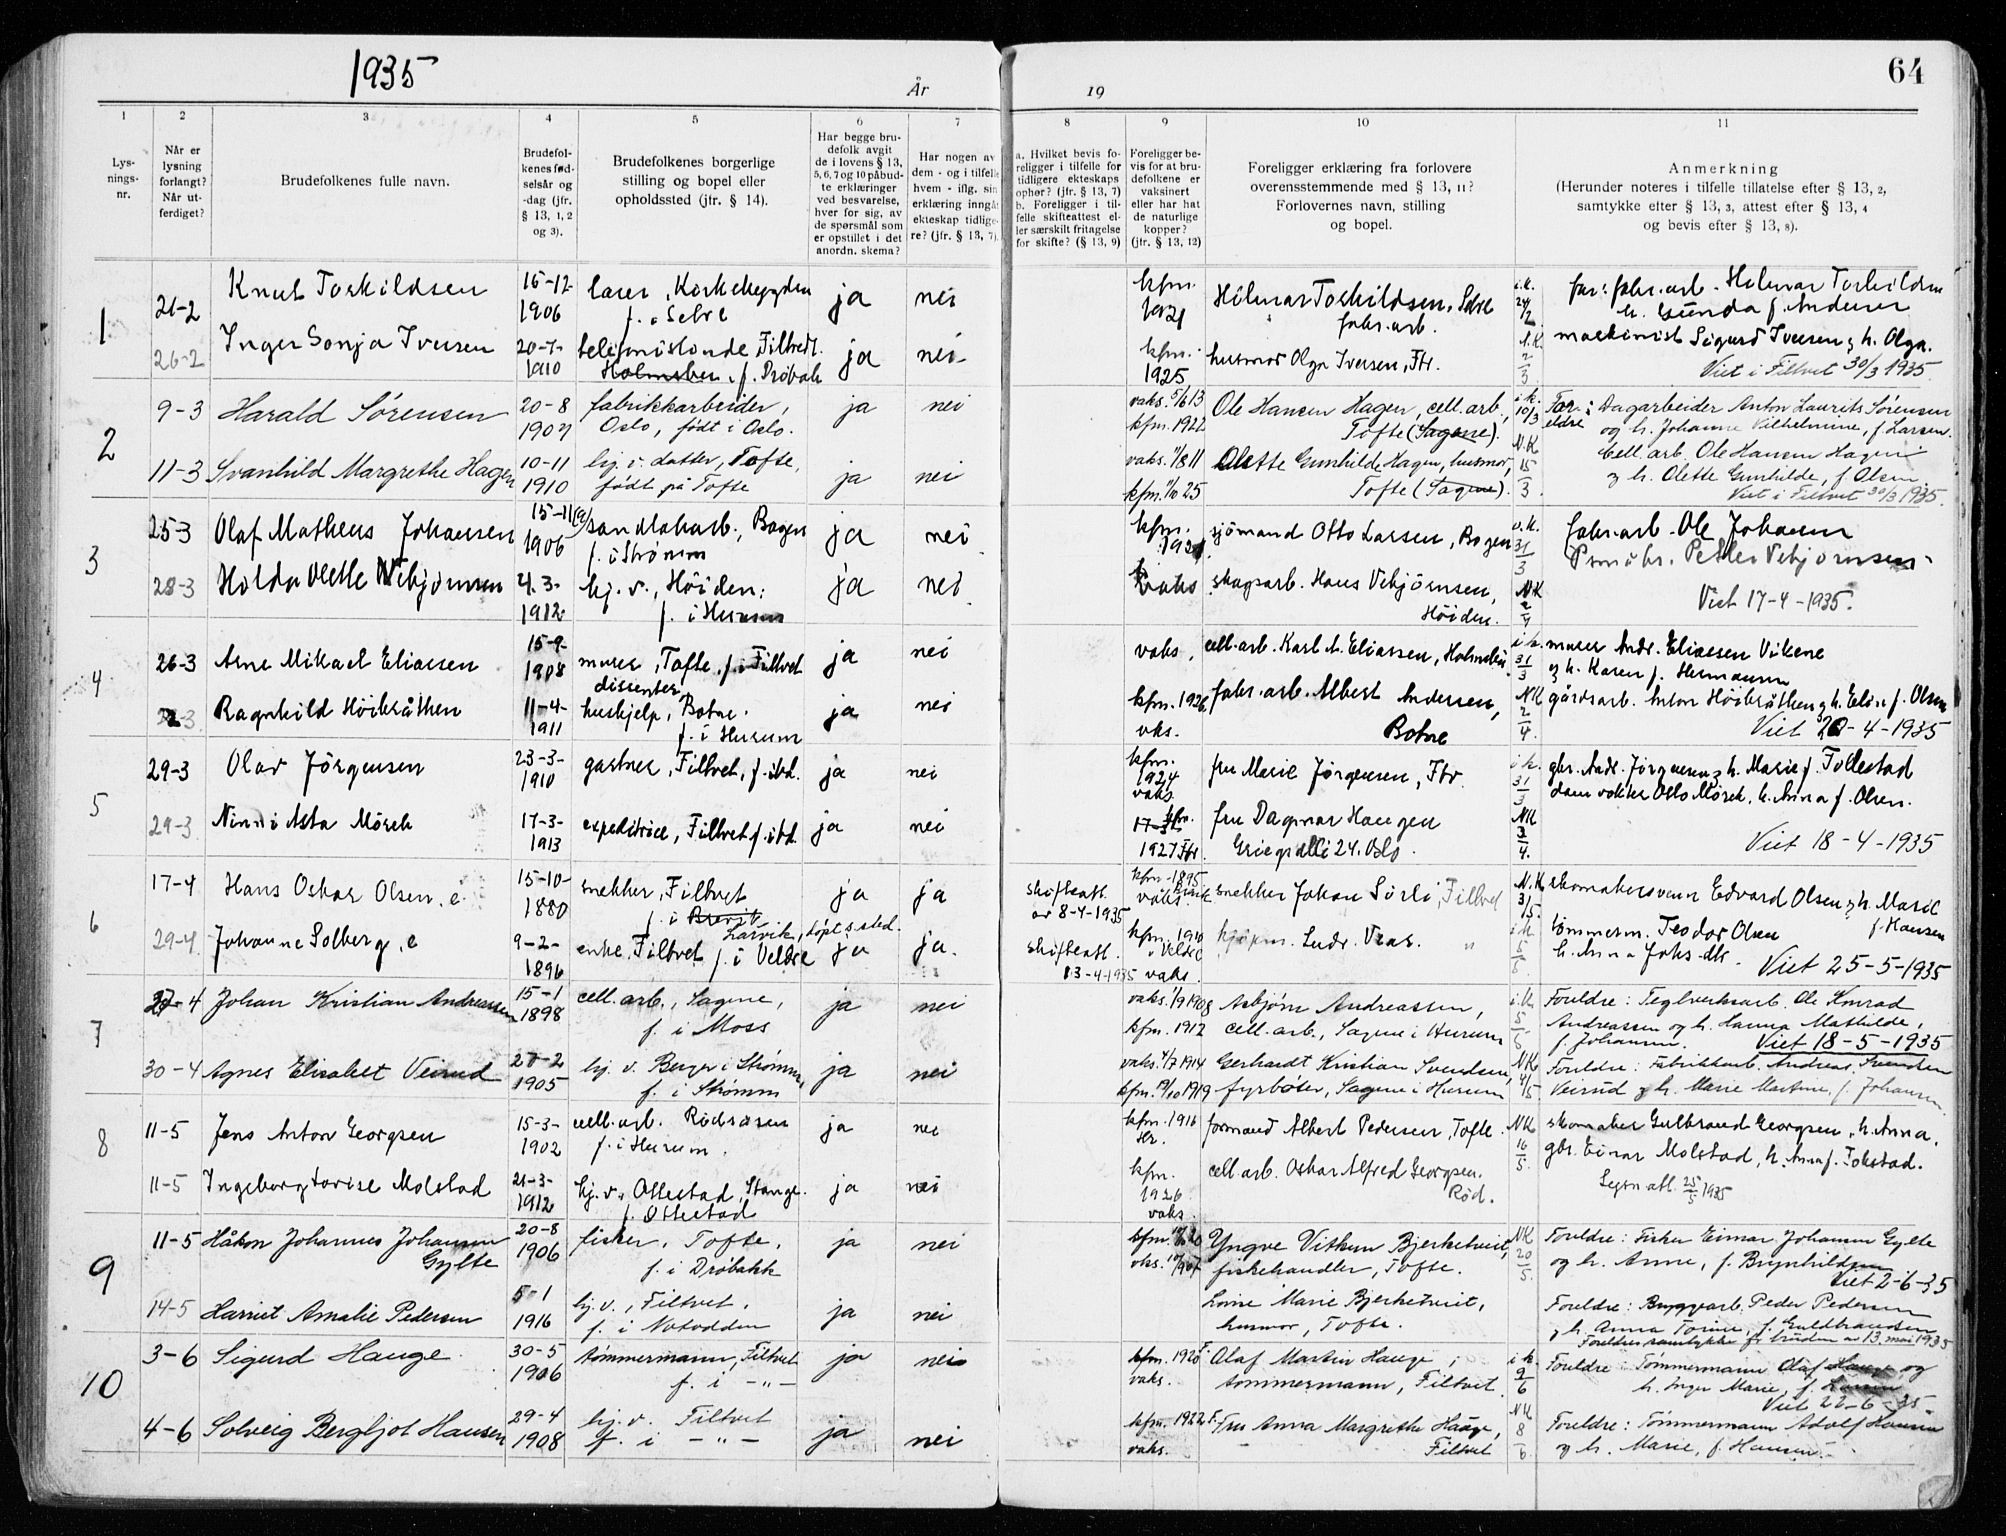 1935
År
19
64
1
2
3
4
5
6
7
8
9
10
11
Lys-
nings-
nr.
Når er
lysning
forlangt?
Når ut-
ferdiget?
Brudefolkenes fulle navn.
Brudefol-
kenes fød-
selsår og
-dag (jfr.
§ 13, 1, 2
og 3).
Brudefolkenes borgerlige
stilling og bopel eller
opholdssted (jfr. § 14).
Har begge bru-
defolk avgit
de i lovens § 13,
5, 6, 7 og 10 påbud-
te erklæringer
ved besvarelse,
hver for sig, av
de spørsmål som
er opstillet i det
anordn. skema?
Har nogen av
dem - og i tilfelle
hvem - iflg. sin
erklæring inngåt
ekteskap tidlige-
re? (jfr. § 13, 7).
a. Hvilket bevis fo-
religger i tilfelle for
tidligere ekteskaps
ophør? (jfr. § 13, 7)
b. Foreligger i til-
felle skifteattest el-
ler særskilt fritagelse
for skifte? (§ 13, 9)
Foreligger be-
vis for at bru-
defolkene er
vaksinert
eller har hat
de naturlige
kopper?
(jfr. § 13, 12)
Foreligger erklæring fra forlovere
overensstemmende med § 13, 11?
Forlovernes navn, stilling
og bopel.
Anmerkning
(Herunder noteres i tilfelle tillatelse efter § 13, 2,
samtykke efter § 13, 3, attest efter § 13, 4
og bevis efter § 13, 8).
1
21-2
Knut Torkildsen
15-12-
1906
ja
nei
kfm.
1921
Hilmar Torkildsen, Selvik
fabr.arb.
far: fabr.arb. Hilmar Torkildsen
h. Gunda f. Andersen
26-2
Inger Sonja Iversen
20-7-
1910
Filtvedt.
f. Drøbak
ja
nei
kfm.
1925
husmor Olga Iversen, Ftv.
maskinist Sigurd Iversen og h. Olga.
Viet i Filtvet 30/3 1935
2
9-3
Harald Sørensen
20-8
1907
fabrikkarbeider,
Oslo, født i Oslo.
ja
nei
vaks. 5/6 13
kfm. 1922
Ole Hansen Hagen, cell.arb.,
Tofte (Sagene).
i k.
10/3
For-
eldre
: Dagarbeider Anton Laurits Sørensen
og h. Johanne Vilhelmine, f. Larsen.
11-3
Svanhild Margrethe Hagen
10-11
1910
hj. v. datter, Tofte,
født på Tofte
ja
nei
vaks. 1/8 11
kfm. 1/10 25
Olette Gunhilde Hagen, husmor,
Tofte (Sagene).
N.K
15
3
Cell. arb. Ole Hansen Hagen
og h. Olette Gunhilde, f. Olsen
Viet i Filtvet 30/3 1935.
3
25-3
Olaf Matheus Johansen
15-11
1906
sandtakarb., Bogen
f. i Strømm
ja
nei
kfm.
1921
sjømand Otto Larsen, Bogen
31
3
fabr.arb. Ole Johansen
28-3
Holda Olette Vebjørnsen
4.3-
1912
hj. v., Høiden.
f. i Hurum
ja
nei
vaks.
skogsarb. Hans Vebjørnsen,
Høiden.
NK
2
4
Petter Vebjørnsen
Viet 17-4-1935.
4
26-3
Arne Mikael Eliassen
15-9-
1908
murer, Tofte, f. i Filtvet
dissenter
ja
nei
vaks.
cell.arb. Karl A. Eliassen, Holmsbu
i k.
31
3
murer Andr. Eliassen Vikene
og h. Karen f. Hermansen
Ragnhild Høibråthen
11-4-
1911
hushjelp, Botne.
f. i Hurum
ja
nei
kfm. 1926
vks.
fabr.arb. Albert Andersen,
Botne
NK
2
4.
gårdsarb. Anton Høibråthen og h. Elin f. Olsen
Viet 20-4-1935
5
29-3
Olav Jørgensen
23-3-
1910
gartner, Filtvet, f. ibd.
ja
nei
kfm.
1924
vaks.
fru Marie Jørgensen, Ftv.
i k.
31
3
gbr. Andr. Jørgensen og h. Marie f. Tollestad
29-3
Ninni Asta Mörch
17-3-
1913
expeditrice, Filtvet f. ibd.
ja
nei
kfm.
1927 Ftv.
fru Dagmar Haugen
Griegs allé 24. Oslo.
NK
3
4.
damvokter Oslo Mörch, h. Anna f. Olsen.
Viet 18-4-1935
6
17-4
Hans Oskar Olsen, e.
15-10-
1880
snekker, Filtvet
f. i Brevik
Larvik, døpt s. sted.
ja
ja
skifteatt.
av 8-4-1935
kfm. 1895
vaks.
snekker Johan Sørli, Filtvet
N.K.
3/5
skomakersvenn Edvard Olsen og h. Marie
f. Hansen
29-4
Johanne Solberg, e
9-2-
1896
enke, Filtvet f. i Veldre
ja
ja.
skifteatt.
13-4-1935
kfm. 1910
i Veldre
vaks.
kjøpm. Ludv. Vear. "
i k
5
5
tømmerm. Teodor Olsen
h. Anna Jaks.dtr.
Viet 25-5-1935
7
27-4
Johan Kristian Andreassen
15-1
1898
cell. arb., Sagene,
f. i Moss
ja
nei
vaks. 1/9 1908
kfm. 1912
Asbjørn Andreassen,
cell. arb., Sagene i Hurum
i k
5
5
Foreldre: Teglverksarb. Ole Konrad
Andreassen og h. Hanna Mathilde,
f. Johansen. Viet 18-5-1935
30-4
Agnes Elisabet Veirud
27-2
1905
hj. v. Berger i Strømm,
f. i Strømm
ja
nei
vaks. 4/7 1914
kfm. 12/10 1919
Gerhardt Kristian Svendsen,
fyrbøter, Sagene i Hurum
NK
4/5
Foreldre: Fabrikkarb. Andreas Svendsen
Veirud og h. Marie Martine, f. Johansen.
8
11-5
Jens Anton Georgsen
15-3-
1902
cell.arb. Rødsåsen
f. i Hurum.
ja
nei
kfm. 1916
Hr.
formand Albert Pedersen, Tofte.
NK
16
5.
skomaker Gulbrand Georgsen, h. Anna.
11-5
Ingeborg Lovise Molstad
21-3-
1912
hj. v. Ottestad, Stange.
f. Ottestad
ja
nei
kfm.
1926.
vaks.
cell.arb. Oskar Alfred Georgsen.
Rød.
gbr. Einar Molstad, h. Anna f. Tokstad.
Lysn.att. 25/5 1935
9
11-5
Håkon Johannes Johansen
Gylte
20-8
1906
fisker, Tofte,
f. i Drøbakk
ja
nei
Yngve Vitkun Bjerketveit,
fiskehandler, Tofte.
NK
20
5.
Foreldre: Fisker Einar Johansen Gylte
og h. Anne, f. Brynhildsen
Viet 2-6-35
14-5
Harriet Amalie Pedersen
5-1
1916
hj. v., Filtvet,
f. i Notodden
ja
nei
Lovise Marie Bjerketveit,
husmor, Tofte.
Foreldre: Bryggearb. Peder Pedersen
og h. Anna Torine, f. Guldbrandsen
Foreldresamtykke for bruden av 13. mai 1935
10
3-6
Sigurd Hauge
30-5
1906
tømmermann, Filtvet
f. i -"-
ja
nei
kfm. 1920 F.
vaks.
Olaf Martin Hauge,
tømmermann, Filtvet.
i k.
9
6
Foreldre: Tømmermann Olaf Hauge og
h. Inger Marie, f. Larsen
Viet 22-6-35-
4-6
Solveig Bergljot Hansen
29-4
1908
hj. v. Filtvet
f. i -"-
ja
nei
kfm. 1922 F.
vaks.
Fru Anna Margrethe Hauge,
Filtvet
NK
8
6
Foreldre: Tømmermann Adolf Hansen
og h. Marie, f. Hansen.